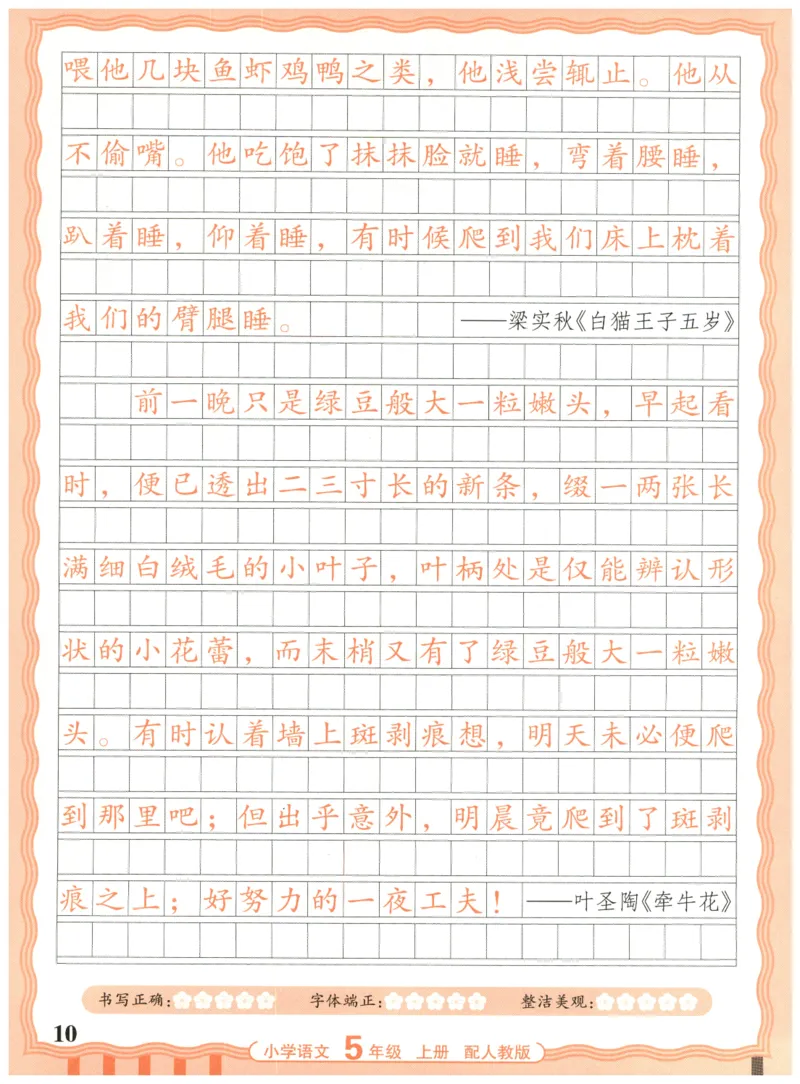 喂他几块鱼虾鸡鸭之类，他浅尝辄止。他从
不偷嘴。他吃饱了抹抹脸就睡，弯着腰睡，
趴着睡，仰着睡，有时候爬到我们床上枕着
我们的臂腿睡。 ——梁实秋《白猫王子五岁》
前一晚只是绿豆般大一粒嫩头，早起看
时，便已透出二三寸长的新条，缀一两张长
满细白绒毛的小叶子，叶柄处是仅能辨认形
状的小花蕾，而末梢又有了绿豆般大一粒嫩
头。有时认着墙上斑剥痕想，明天未必便爬
到那里吧；但出乎意外，明晨竟爬到了斑剥
痕之上；好努力的一夜工夫！ ——叶圣陶《牵牛花》
书写正确： 字体端正： 整洁美观：
10
小学语文 5年级 上册 配人教版